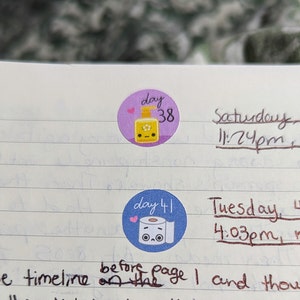 day
38
Saturday,
11:24pm,
day 41
Tuesday, 4
4:03pm,
e timeline on the before page 1 and thou